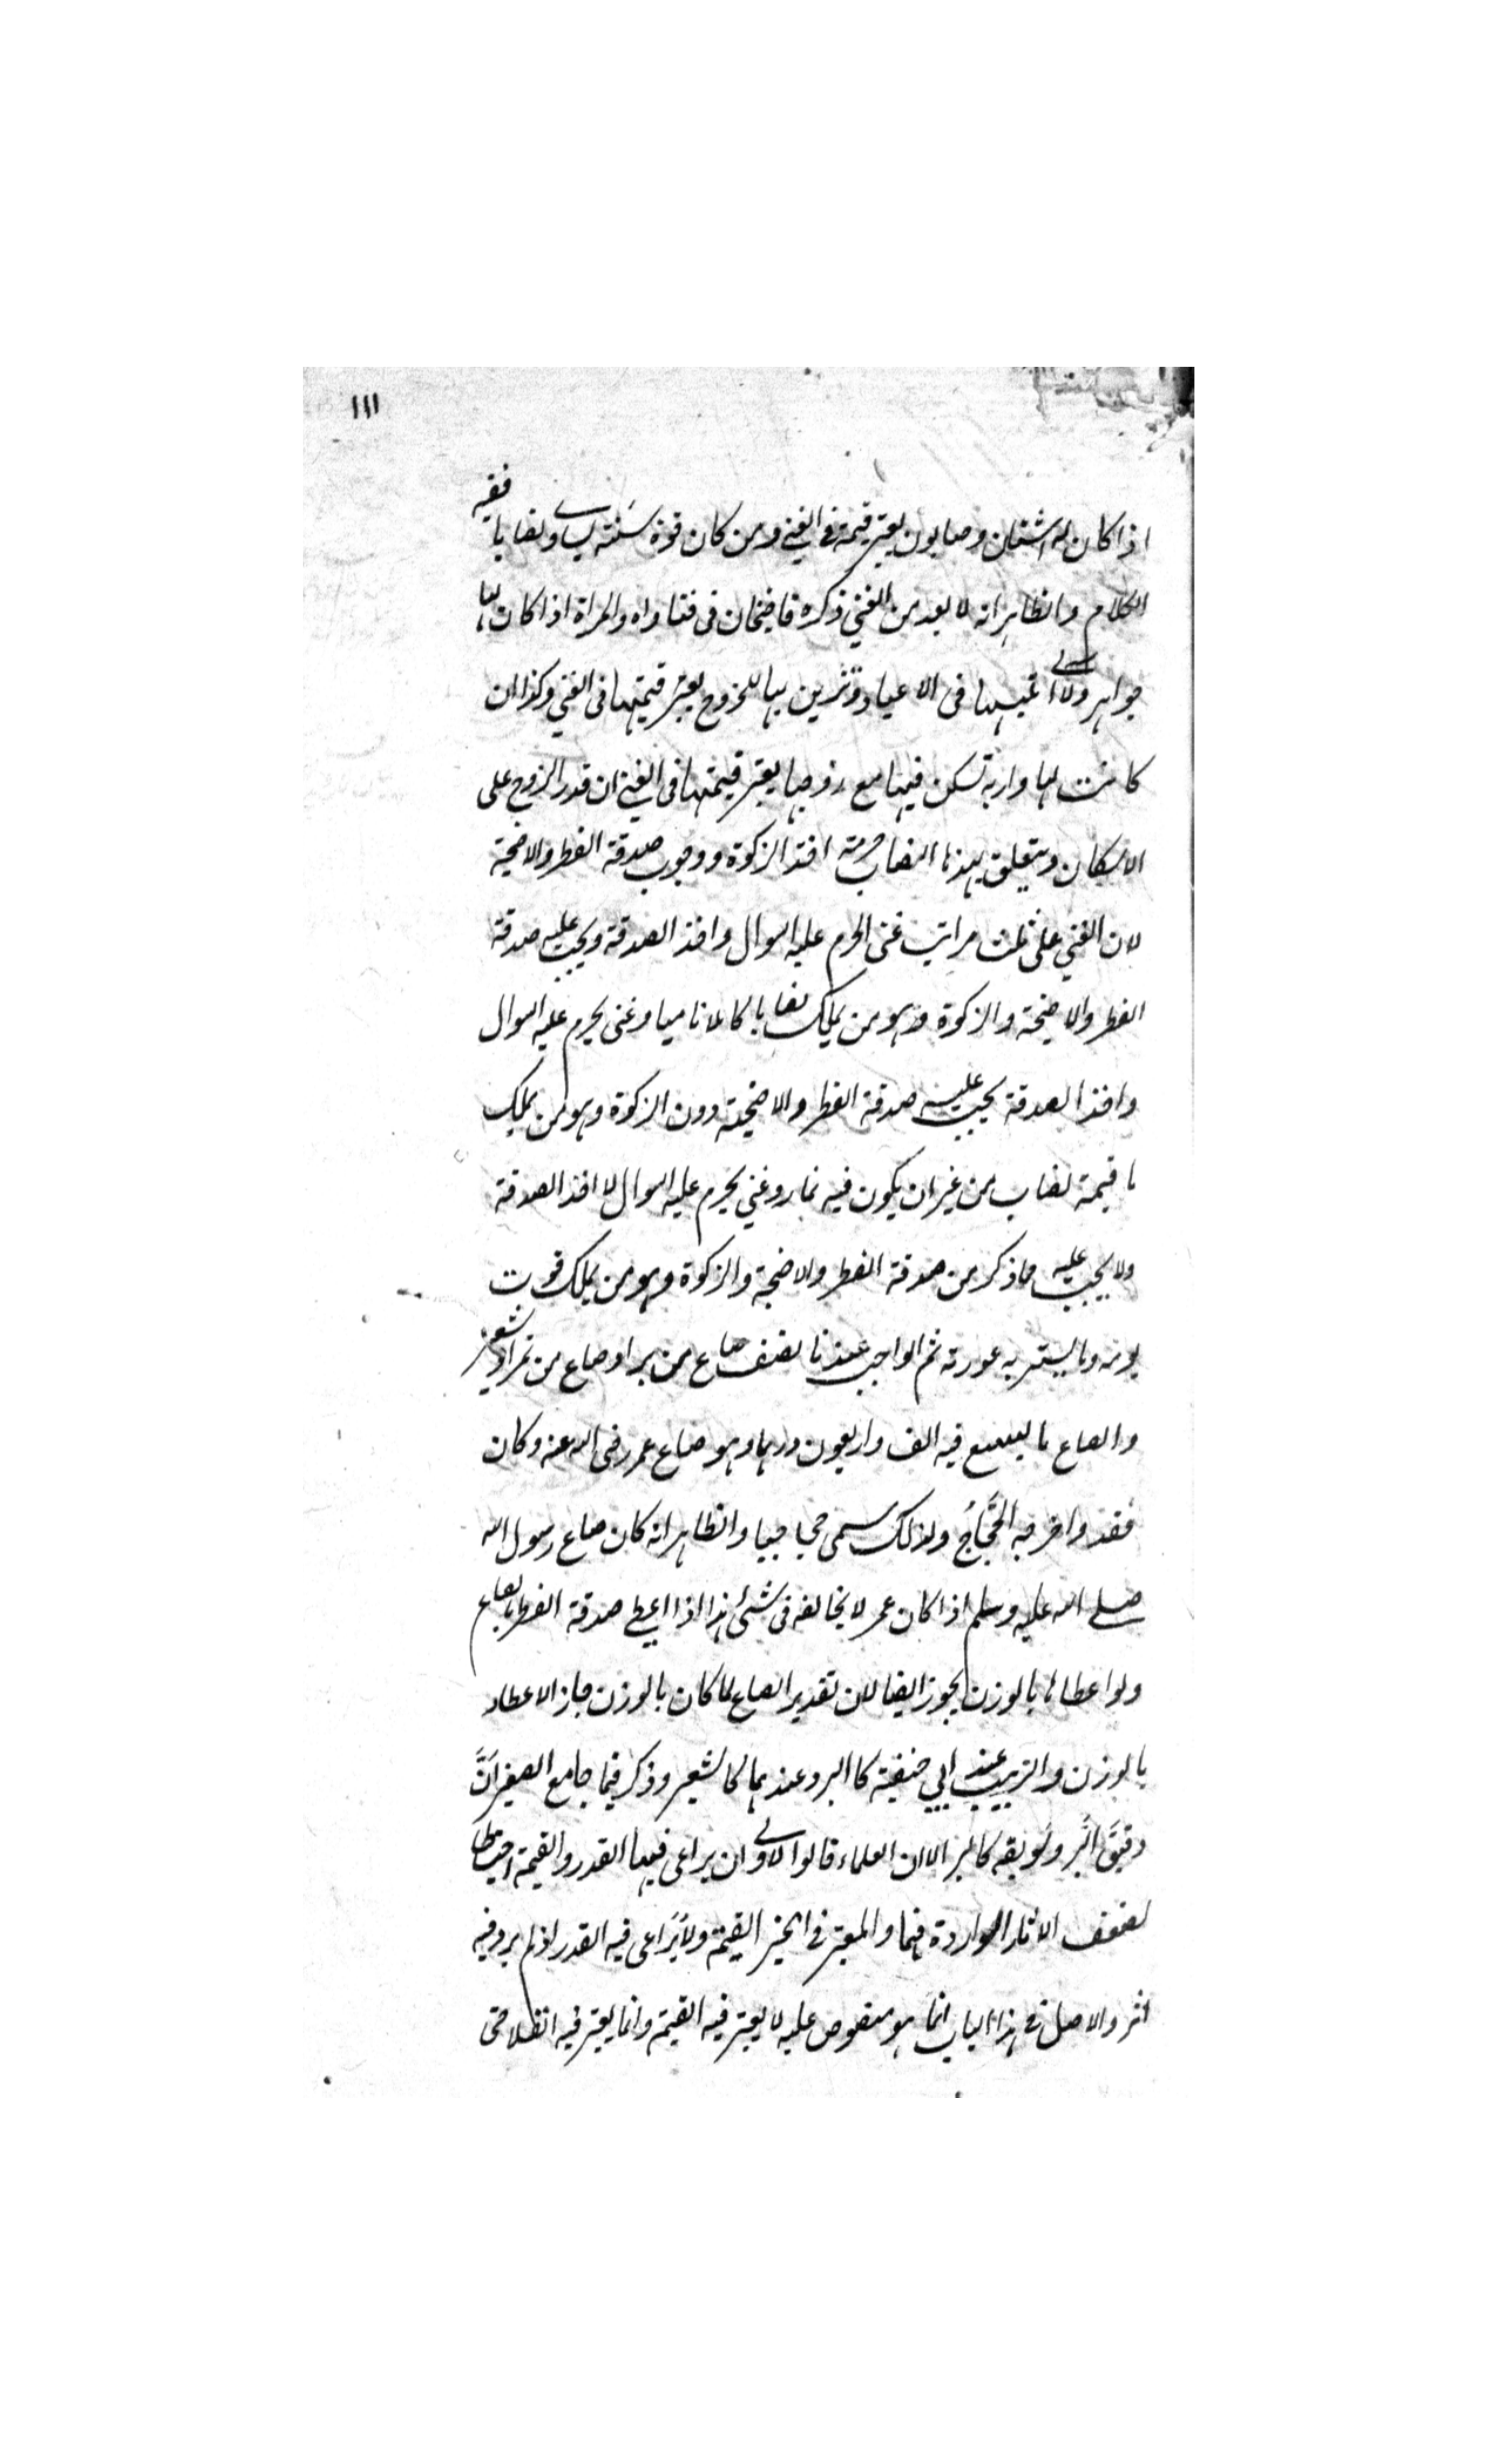 ١١١
اذا كان له اشنان وصابون يعتبر قيمته فى الغنى ومن كان قوة سنته يساوى نصابا ففيه
الكلام والظاهر انه لا يعد من الغنى ذكره قاضيخان فى فتاواه والمراة اذا كان لها
جواهر ولآلى تلبسها فى الاعياد وتتزين بها للزوج يعتبر قيمتها فى الغنى وكذا ان
كانت لها دارية تسكن فيها مع زوجها يعتبر قيمتها فى الغنى ان قدر الزوج على
الاسكان ويتعلق بهذا النصاب حرمة اخذ الزكوة ووجوب صدقة الفطر والاضحية
لان الغنى على ثلث مراتب غنى يحرم عليه السوال واخذ الصدقة ويجب عليه صدقة
الفطر والاضحية والزكوة وهو من يملك نصابا كاملا ناميا وغنى يحرم عليه السوال
واخذ الصدقة يجب عليه صدقة الفطر والاضحية دون الزكوة وهو من يملك
ما قيمته نصاب من غير ان يكون فيه نماء وغنى يحرم عليه السوال لا اخذ الصدقة
ولا يجب عليه مما ذكر من صدقة الفطر والاضحية والزكوة وهو من يملك قوت
يومه وما يستر به عورته ثم الواجب عندنا نصف صاع من بر او صاع من تمر او شعير
والصاع ما يسع فيه الف واربعون درهما وهو صاع عمر رضى الله عنه وكان
فقد واخرجه الحَجَّاجُ ولذلك سمى حجاجيا والظاهر انه كان صاع رسول الله
صلى الله عليه وسلم اذا كان عمر لا يخالفه فى شئ هذا اذا اعطى صدقة الفطر بالصاع
ولو اعطاها بالوزن يجوز ايضا لان تقدير الصاع لما كان بالوزن جاز الاعطاء
بالوزن والزبيب عند ابي حنيفة كالبر وعندهما كالشعير وذكر فيما جامع الصغير انَّ
دقيقَ البُر وسويقه كالبر الا ان العلماء قالوا الاولى ان يراعى فيهما القدر والقيمة احتياطا
لضعف الاثار الواردة فيهما والمعتبر فى الخبز القيمة ولا يُراعى فيه القدر اذ لم يرد فيه
اثر والاصل فى هذا الباب انما هو منصوص عليه لا يعتبر فيه القيمة وانما يعتبر فيه حتى